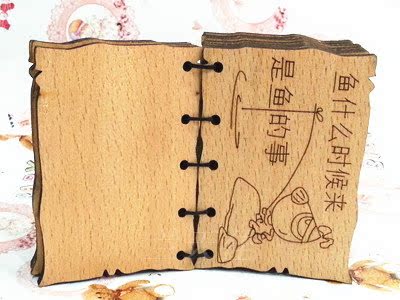 鱼什么时候来
是鱼的事